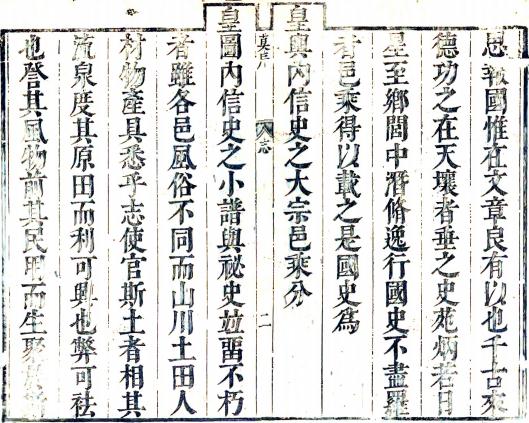 恩報國惟在文章良有以也千古來
德功之在天壤者垂之史苑炳若日
星至鄉閭中潛脩逸行國史不盡羅
者邑乘得以載之是國史為
皇輿內信史之大宗邑乘分
志
二
皇圖內信史之小譜與祕史並畱不朽
者雖各邑風俗不同而山川土田人
材物產具悉乎志使官斯土者相其
流泉度其原田而利可興也弊可祛
也登其風物前其民用而生聚